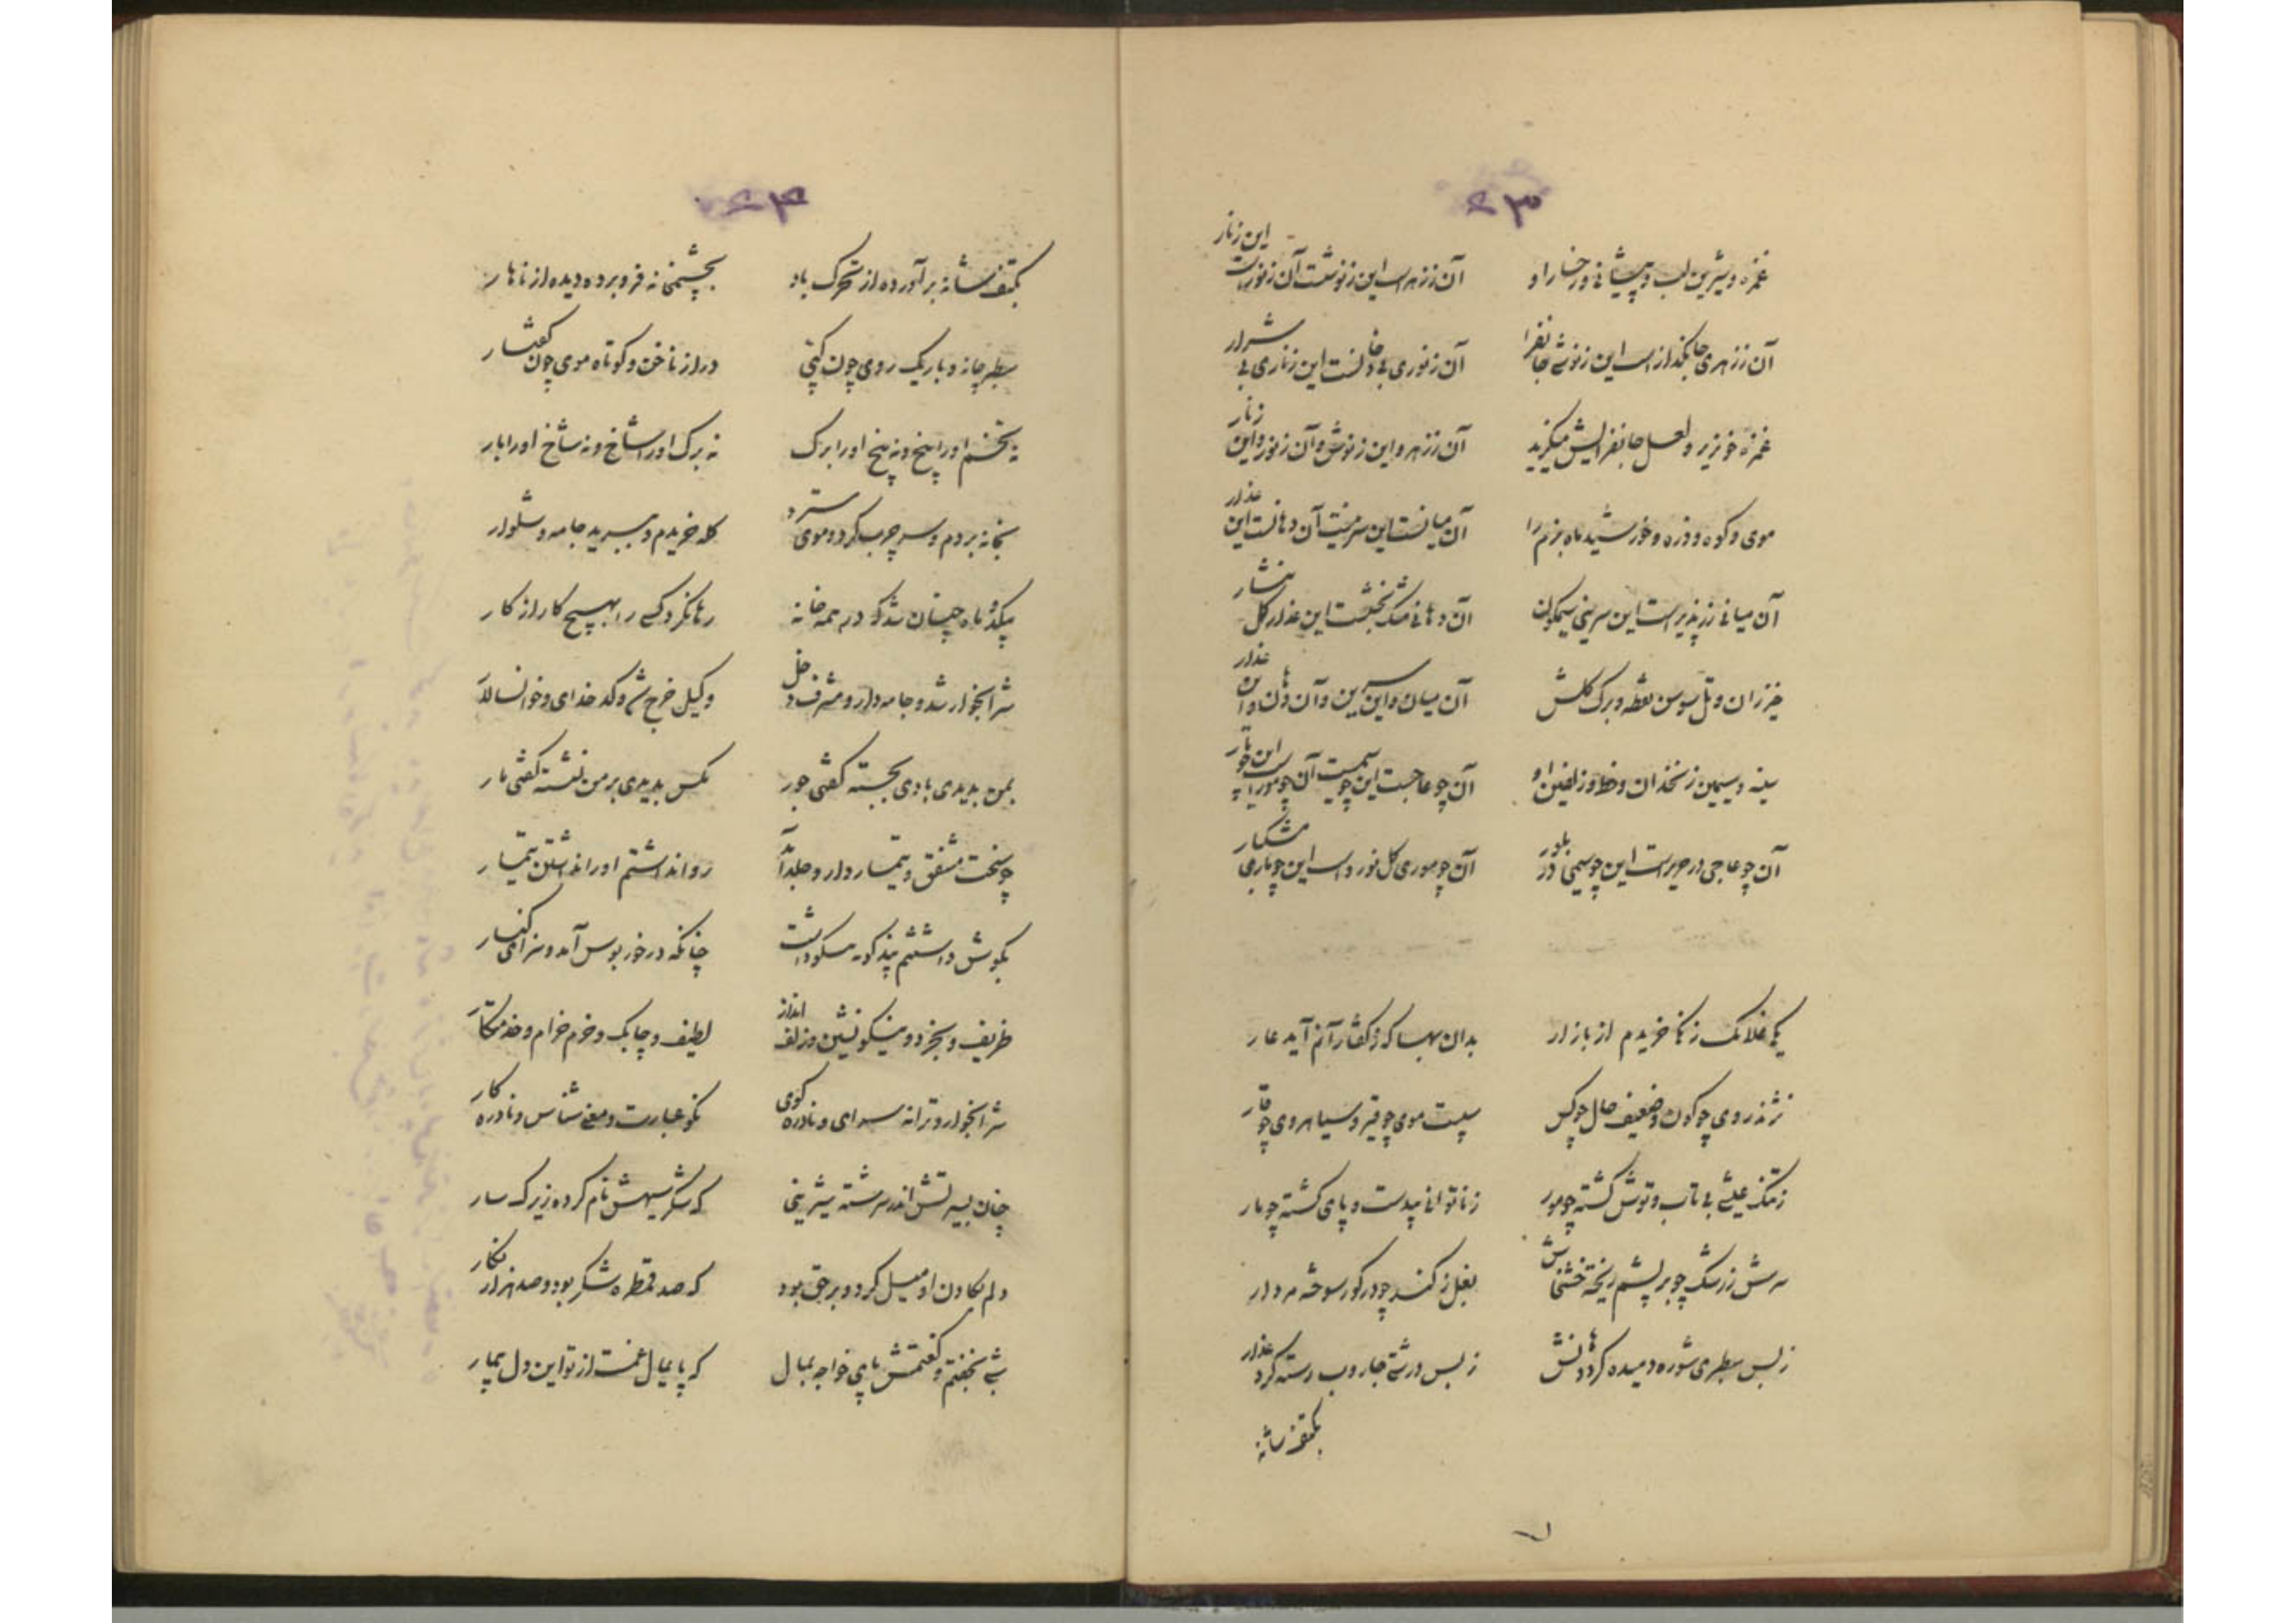 ۲۳
غمزه و شیرین لب و پیشانی و رخسار او آن ز زهر است این ز نوشست آن ز نور است این ز نار
آن ز زهری جانگداز است این ز نوشی جانفزا آن ز نوری بی دخانست این ز ناری بی شرار
غمزه خونریز و لعل جانفزایش میگزید آن ز زهر و این ز نوش و آن ز نور و این ز نار
موی و کوه و ذره و خورشید ماه بزم را آن میانست این سرینست آن دهانست این عذار
آن میانی این سرینی سیمگون آن دهانی این عذار گل
خیزران و تل سوسن نقطه و برک گلش آن میان و این سرین و آن دهان و این عذار
سینه و سیمین زنخدان و خط و زلفین او آن چو عاجست این چو سیمست آن چو مور است این چو مار
آن چو عاجی در حریر است این چو سیمی در بلور آن چو موری گل نورد است این چو ماری مشکبار
یکی غلامک خریدم از بازار بدان بها که ز گفتار آنم آید عار
نژند روی چو کودن و ضعیف حال چو سپیت موی چو قیر و سیاه روی چو قار
ز تنک عیشی بی تاب و توش گشته چو مور ز ناتوانی بیدست و پای گشته چو مار
سرش ز رشک چو بر پشم ریخته خشخاش بغل ز کند چو در گور سوخته مردار
ز بس سطبری شوره دمیده کرد دهانش ز بس درشتی جاروب رسته کرد عذار
بکتف شانه
۲۴
بکتف شانه برآورده از تحرک باد بچشمخانه فرو برده دیده از ناهار
سطبر چانه و باریک روی چون کپی دراز ناخن و کوتاه موی چون کفتار
نه تخم او را بیخ و نه بیخ او را برک نه برک او را شاخ و نه شاخ او را بار
بخانه بردم و سر چرب کرد و موی سترد کله خریدم و ببرید جامه و شلوار
بیکدو ماه چنان شد که در همه خانه رها نکرد کسی را بهیچ کار از کار
شرابخوار شد و جامه دار و مشرف دخل وکیل خرج شد و کدخدای و خوانسالار
بمن بدیدی بادی بجسته گفتی جور مکس بدیدی بر من نشسته گفتی مار
چو سخت مشفق و تیمار دار و جلد آمد روا نداشتم او را نداشتن تیمار
بکوش داشتم چنانکه در خور بوس آمد و سزای کنار
ظریف و بخرد و نیکو نشین و زلف انداز لطیف و چابک و خرم خرام و خدمتکار
شرابخوار و ترانه سرای و نادره گوی نکو عبارت و معنی شناس و نادره کار
چنان بسیرتش اندر سرشته شیرینی که شکر سیهش نام کرده زیرک سار
دلم بگادن او میل کرد و بر حق بود که صد قمطره شکر بود و صد هزار نگار
شبی بخفتم و گفتمش پای خواجه بمال که پایمال غمست از تو این دل بیمار